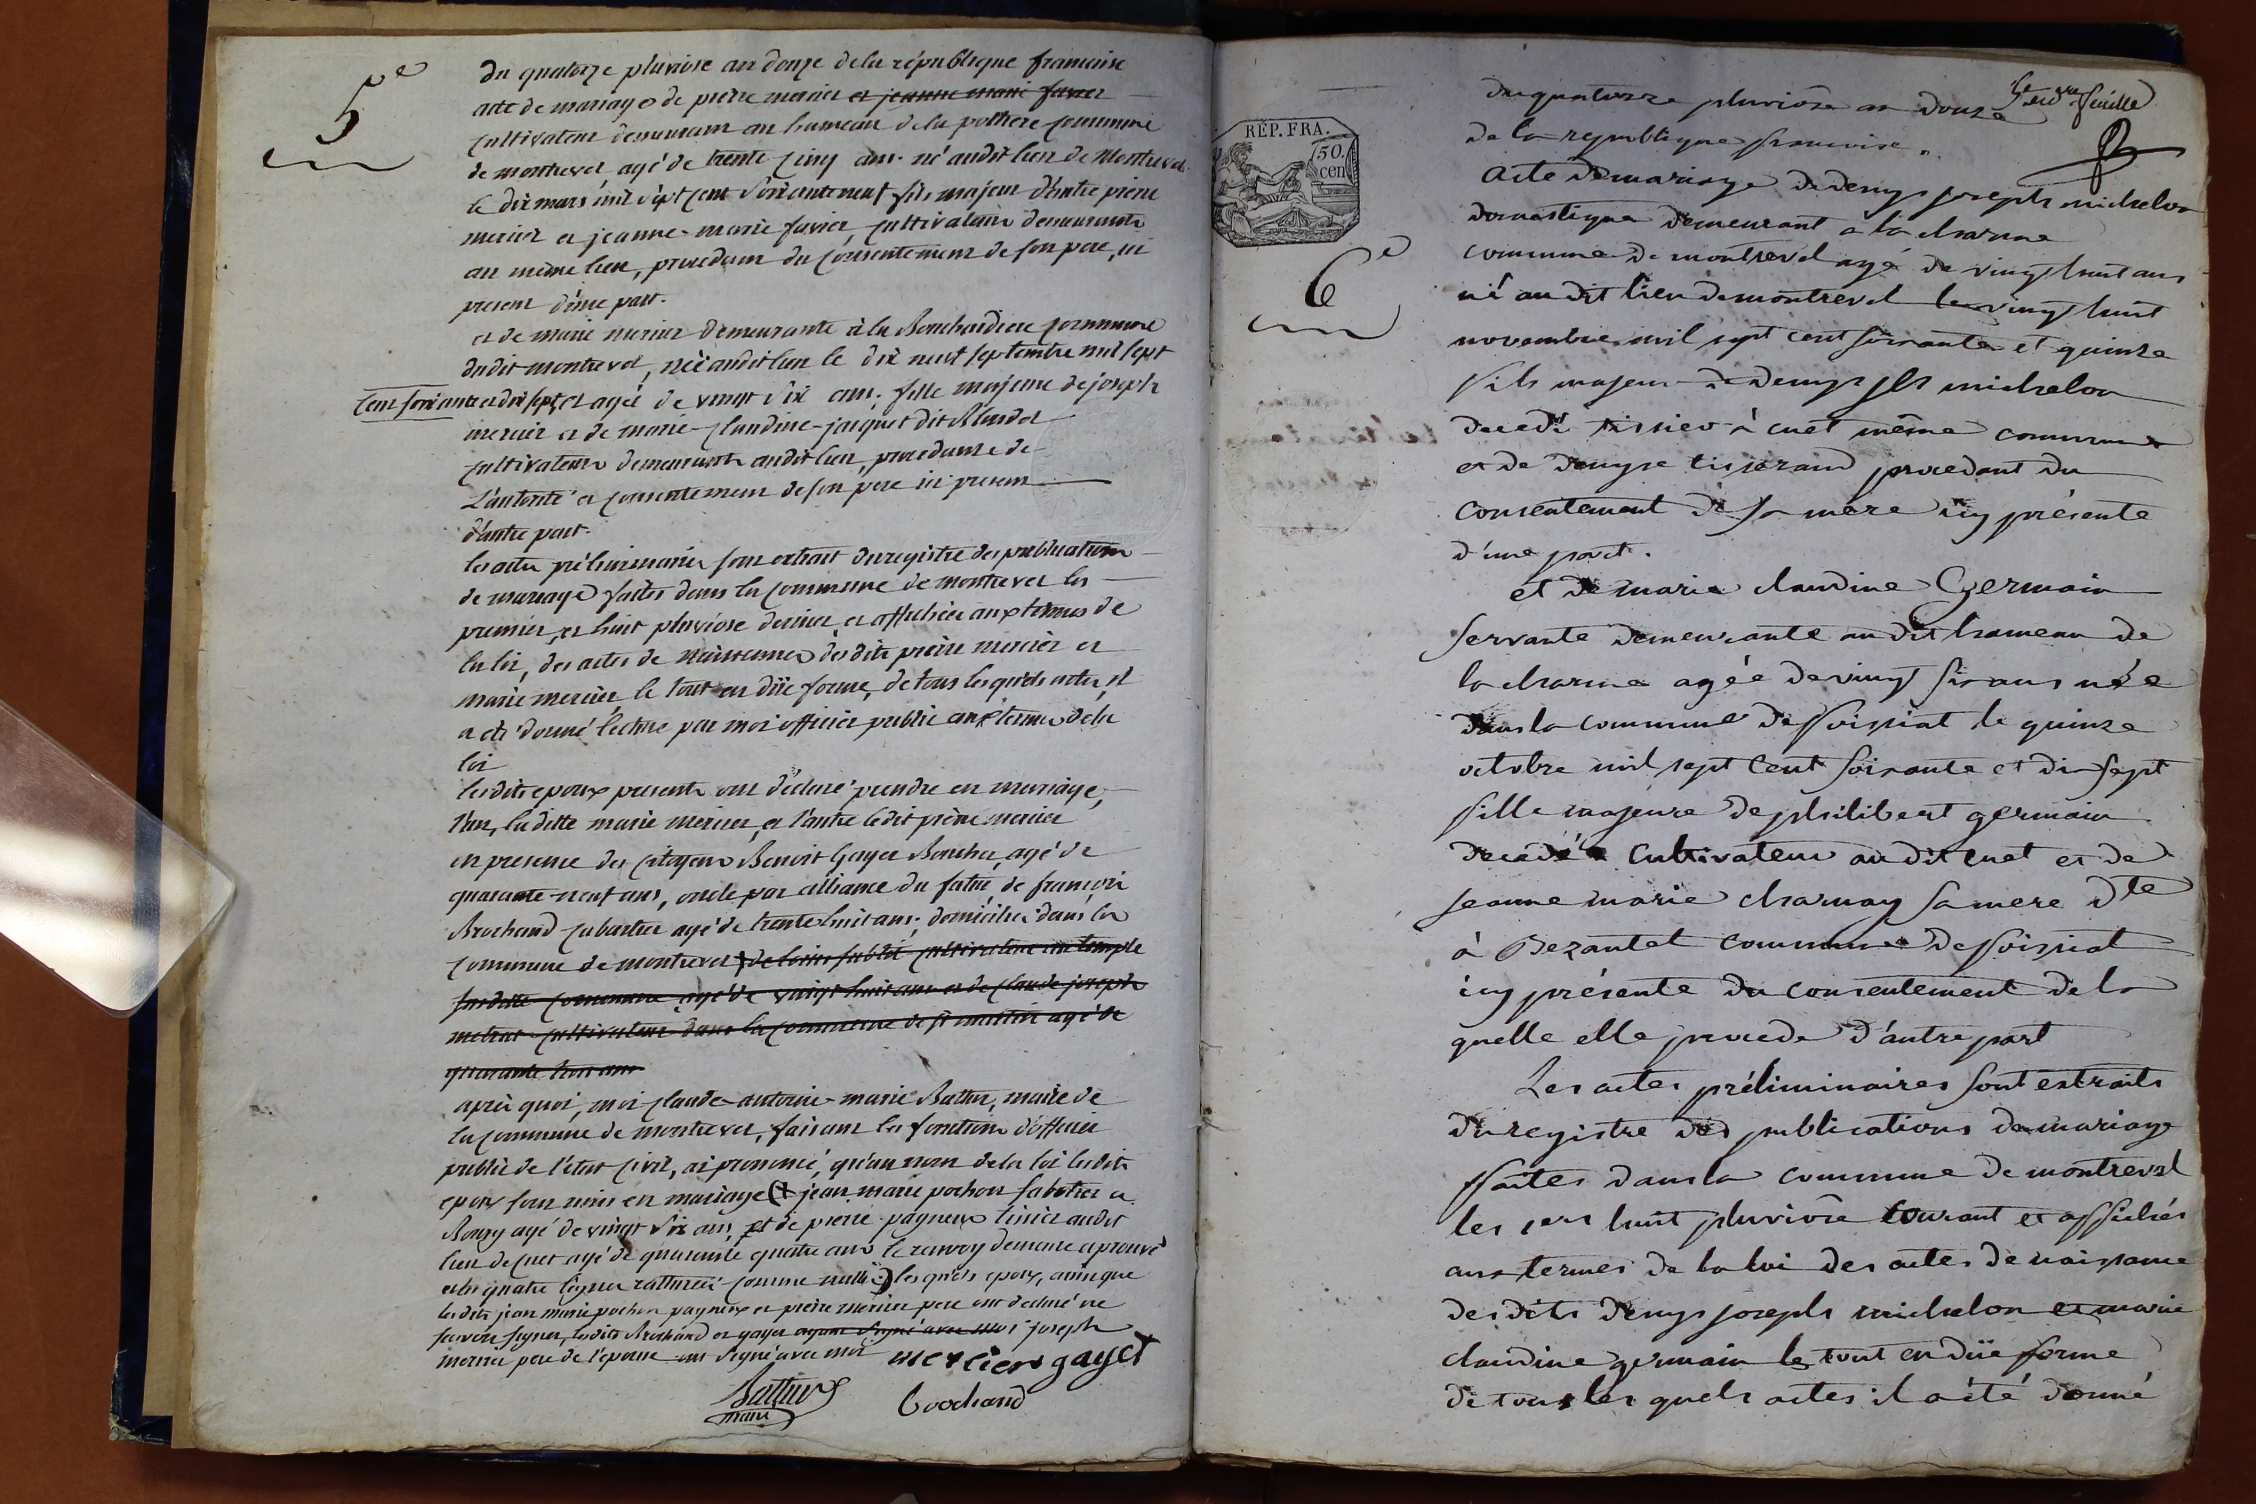 5e
Du quatorze pluviose an douze dela république francaise
acte de mariage de pierre mercier et jeanne marie favier
cultivateur demeurant au hameau dela commune
de montrevel agé de trente cinq ans. né audit lieu de Montrevel
le dix mars mil sept cent soixante neuf fils majeur d'entre pierre
mercier et jeanne-marie favier, cultivateurs demeurants
au même lieu, procedant du consentement de son pere, ici
present d'une part.
et de marie mercier demeurante à la Bouchardiere commune
dudit montrevel, née audit lieu le dix neuf septembre mil sept
cent soixante et dix sept, et agée de vingt six ans. fille majeure de joseph
mercier et de marie-claudine-jacquet dit
cultivateurs demeurants audit lieu, procedante de
L'autorité et consentement de son pere ici present
d'autre part.
les actes préliminaires sont extrait du registre des publications
de mariage faites dans la commune de montrevel les
premier, et huit pluviose dernier et affichées aux termes de
la loi, des actes de naissances desdits pierre mercier et
marie mercier, le tout en düe forme, de tous lesquels actes, il
a été donné lecture par moi officier public aux termes dela
loi
lesdits epoux presents ont déclaré prendre en mariage,
l'un, laditte marie mercier, et l'autre ledit pierre mercier
en presence des citoyens Benoit Gayet Boucher, agé de
quarante-neuf ans, oncle par alliance du futur de francois
Brochand cabartier agé de trente huit ans; domiciliés dans la
commune de montrevel cultivateur
susditte commune agé de vingt huit ans et de claude joseph
cultivateur dans la commune de st martin agé de
quarante trois ans
après quoi, moi claude-antoine-marie Battur, maire de
la commune de montrevel, faisant les fonctions d'officier
public de l'état civil, ai prononcé, qu'au nom dela loi lesdits
epoux sont unis en mariage (+ jean marie pochon sabotier a
Bourg agé de vingt six ans, et de pierre pagneux tissier audit
lieu de cuet agé de quarante quatre ans le renvoy demeure aprouvé
et les quatre lignes ratturées comme nulles) lesquels epoux, ainsi que
lesdits jean marie pochon pagneux et pierre mercier pere ont declaré ne
savoir signer, lesdits Brochand et gayet ayant signé avec moi joseph
mercier pere de l'epouse ont signé avec moi
mercier gayet
Battur
maire
brochand
5e et dre feuille
RÉP. FRA.
50.
cen
6e
du quatorze pluviôse an douze
de la republique francaise.
Acte de mariage de denys joseph michelon
domestique demeurant à la charme
commune de montrevel agé de vingt huit ans
né au dit lieu de montrevel le vingt huit
novembre mil sept cent soixante et quinze
fils majeur de denys michelon
decedé tissier à cuet même commune
et de denyse tisserand procedant du
consentement de sa mère icy présente
d'une part.
et de marie claudine Germain
servante demeurante au dit hameau de
la charme agée de vingt six ans née
dans la commune de foissiat le quinze
octobre mil sept cent soixante et dix sept
fille majeure de philibert germain
decedé cultivateur au dit cuet et de
jeanne marie charnay sa mere dte
à Bezantel commune de foissiat
icy présente du consentement de la
quelle elle procede d'autre part
Les actes préliminaires sont extraits
du registre des publications de mariage
faites dans la commune de montrevel
les 1er huit pluviôse courant et affichés
aux termes de la loi des actes de naissance
des dits denys joseph michelon et marie
claudine germain le tout en düe forme
de tous les quels actes il a été donné